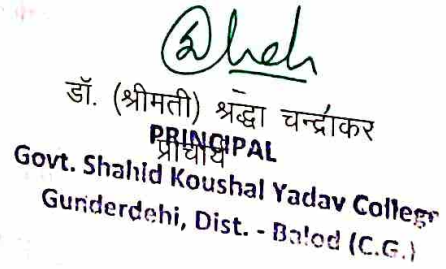 डॉ. (श्रीमती) श्रद्धा चन्द्राकर
PRINCIPAL
प्राचार्य
Govt. Shahid Koushal Yadav College
Gunderdehi, Dist. - Balod (C.G.)